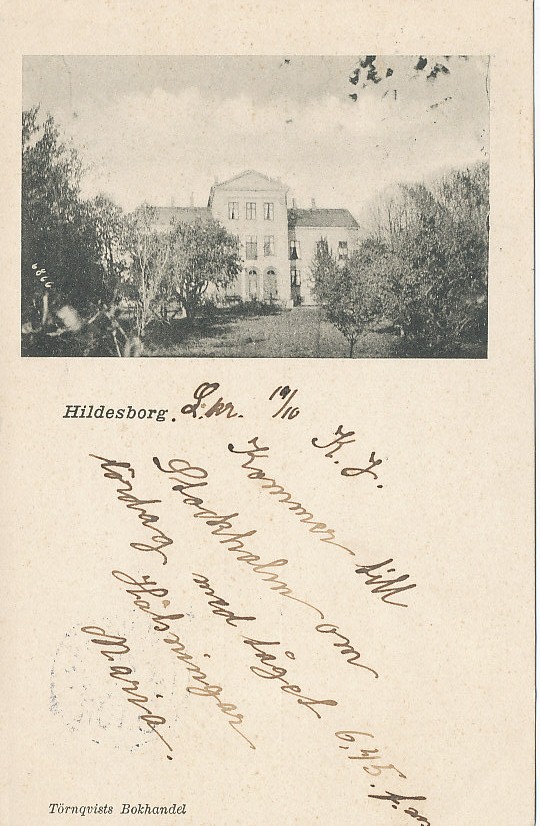 6866
Hildesborg. L.kr. 19/10
K. J.
Kommer till
Stockholm om
lördag med tåget 6,45. f.m
Hälsningar
Maria.
Törnqvists Bokhandel